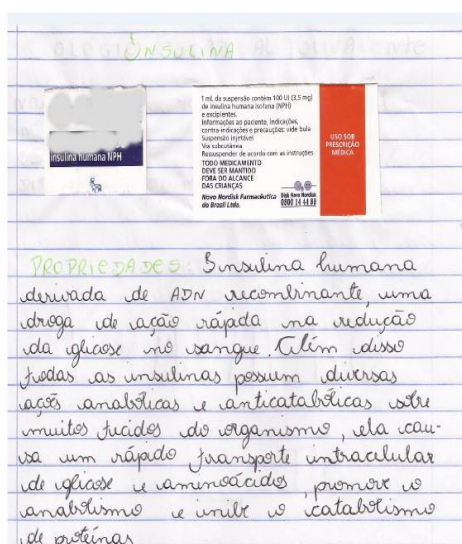 INSULINA
insulina humana NPH
1 mL da suspensão contém 100 UI (3,5 mg)
de insulina humana isofana (NPH)
e excipientes.
Informações ao paciente, indicações,
contra-indicações e precauções: vide bula
Suspensão injetável
Via subcutânea
Ressuspender de acordo com as instruções
TODO MEDICAMENTO
DEVE SER MANTIDO
FORA DO ALCANCE
DAS CRIANÇAS
Novo Nordisk Farmacêutica
do Brasil Ltda.
Disk Novo Nordisk
0800 14 44 88
USO SOB
PRESCRIÇÃO
MÉDICA
PROPRIEDADES: Insulina humana
derivada de ADN recombinante, uma
droga de ação rápida na redução
da glicose no sangue. Além disso
todas as insulinas possuem diversas
ações anabólicas e anticatabólicas sobre
muitos tecidos do organismo, ela cau-
sa um rápido transporte intracelular
de glicose e aminoácidos, promove o
anabolismo e inibe o catabolismo
de proteínas